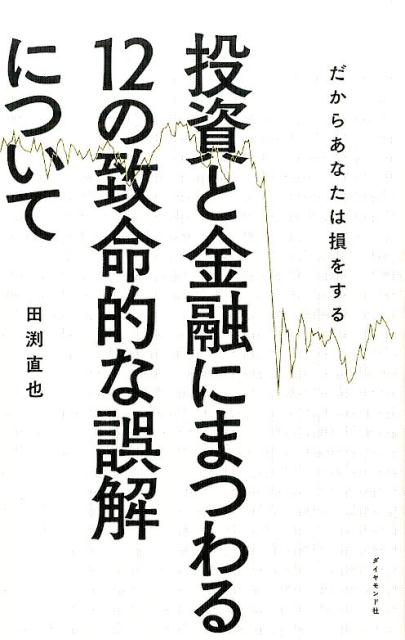 だからあなたは損をする
投資と金融にまつわる
12の致命的な誤解
について
田渕直也
ダイヤモンド社